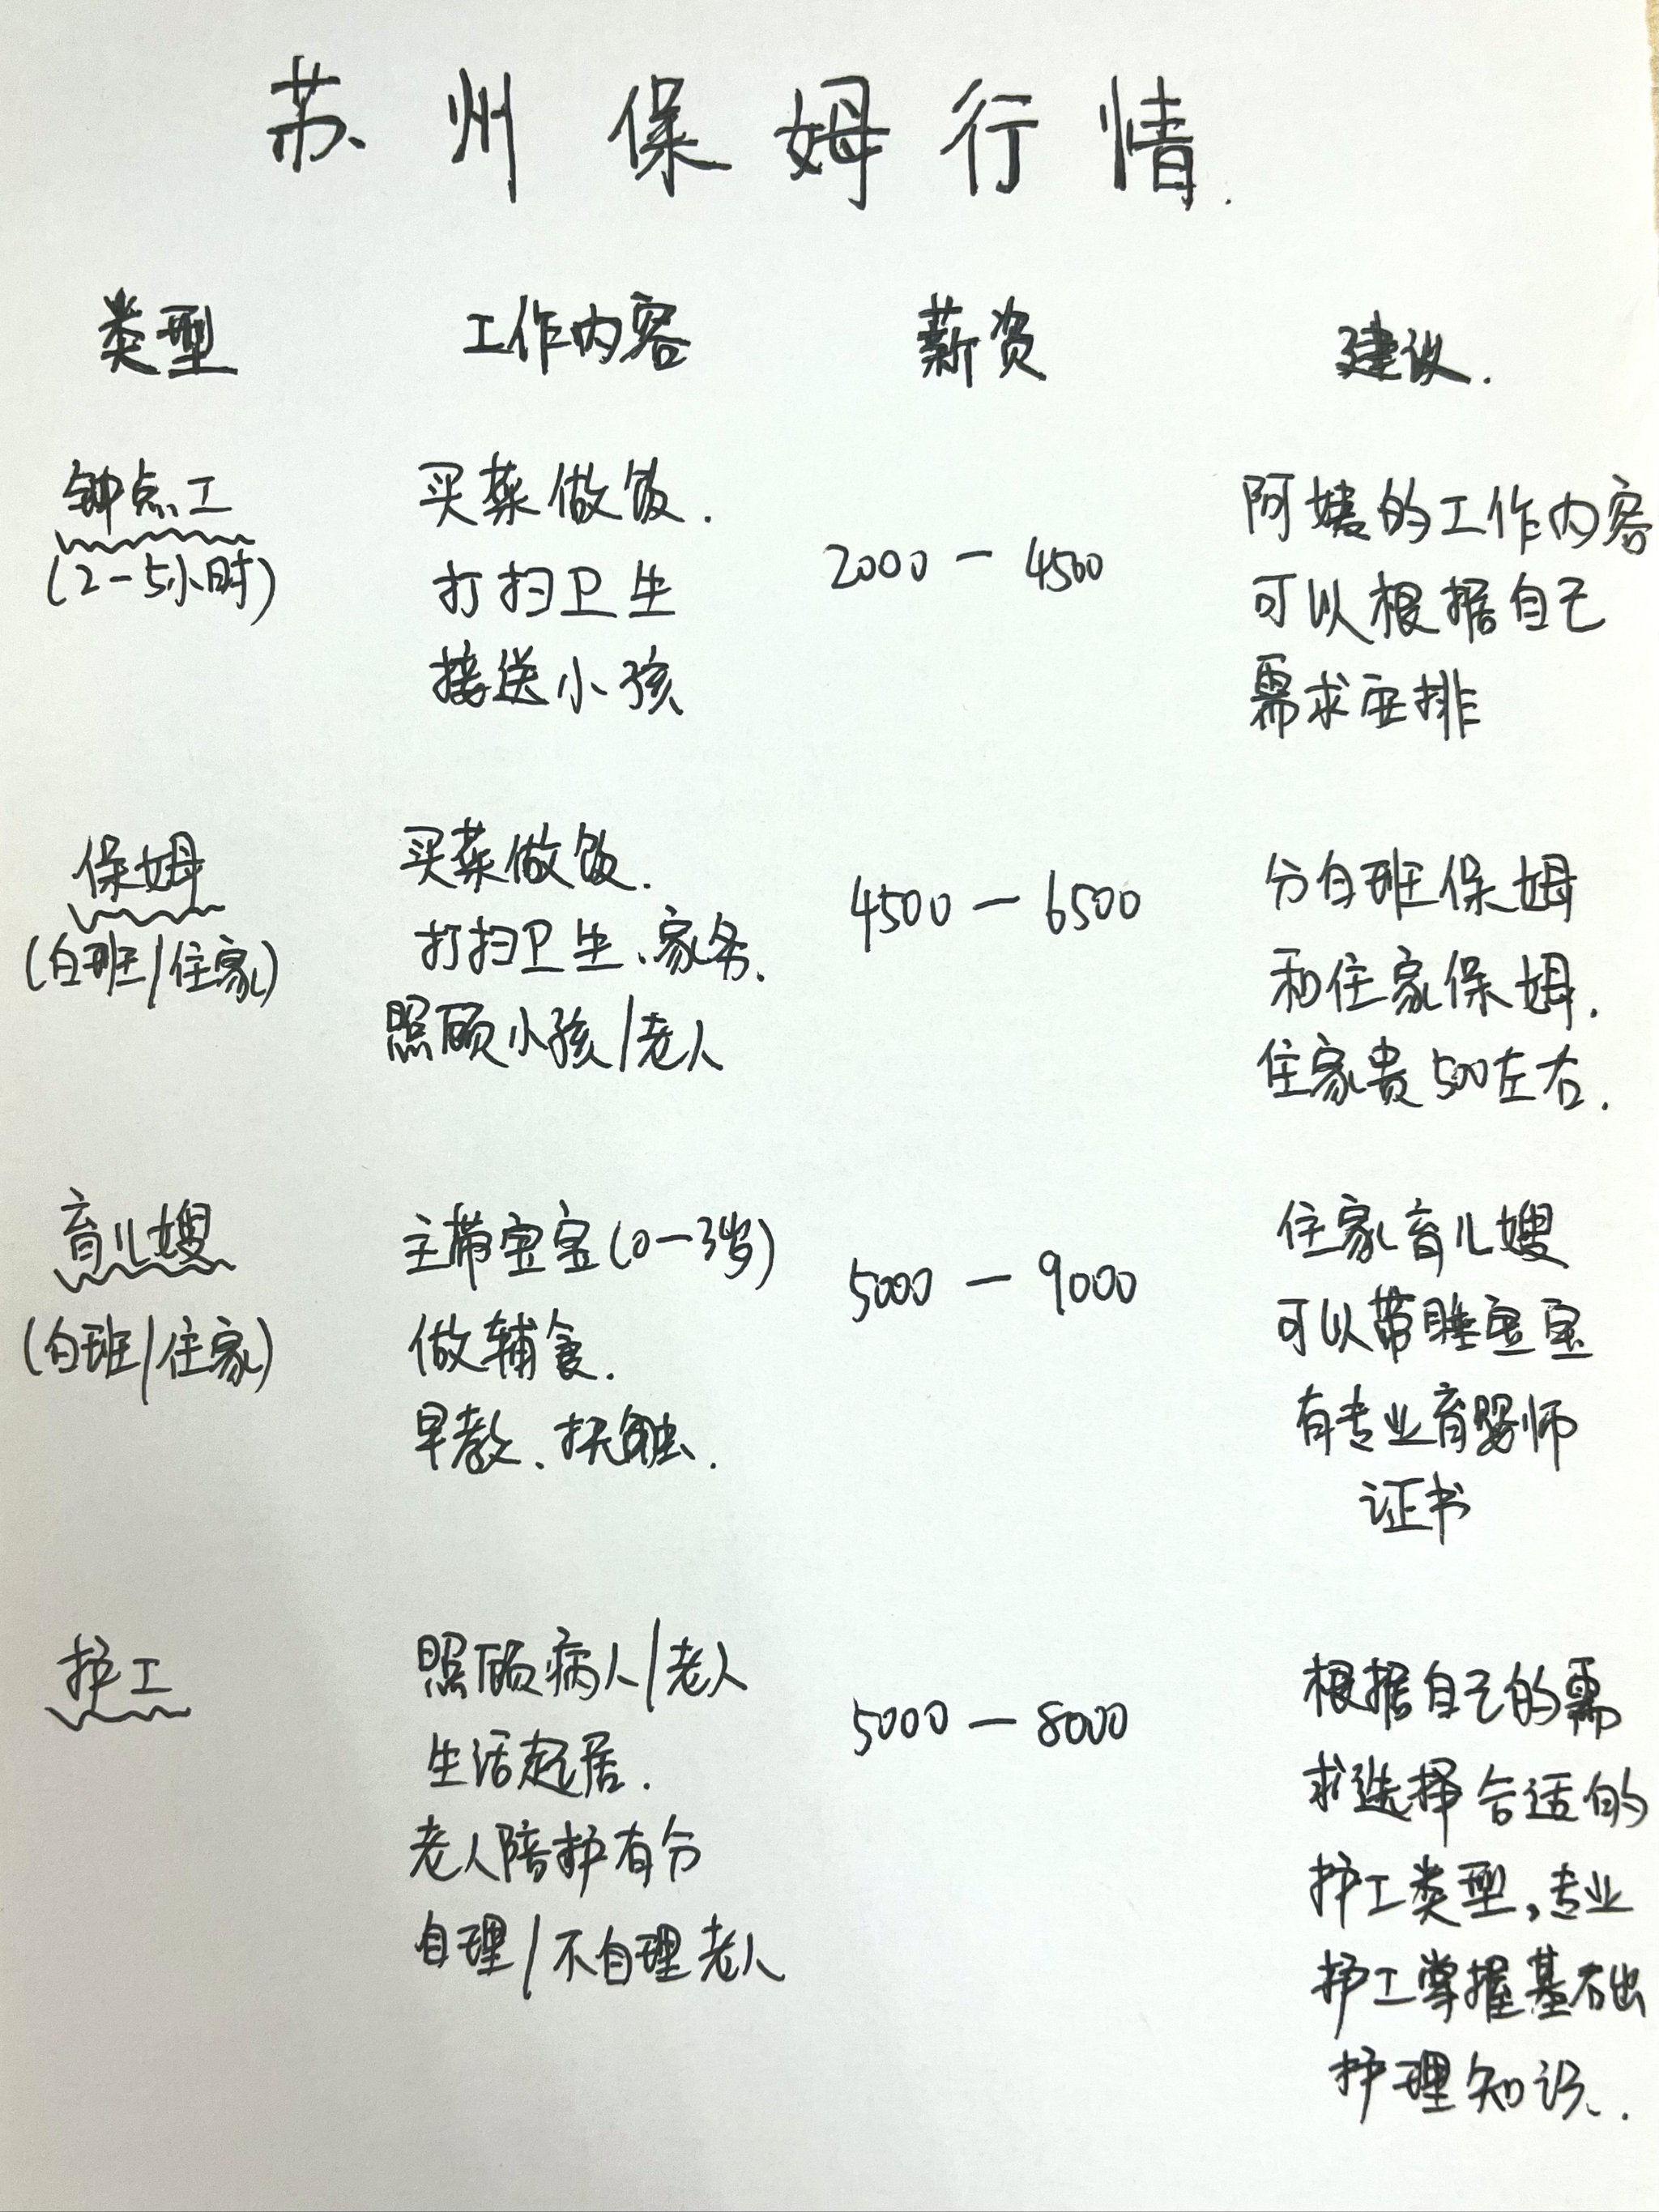 苏州保姆行情.
类型 工作内容 薪资 建议.
钟点工
(2-5小时)
买菜做饭.
打扫卫生
接送小孩
2000 - 4500
阿姨的工作内容
可以根据自己
需求安排
保姆
(白班/住家)
买菜做饭.
打扫卫生、家务.
照顾小孩/老人
4500 - 6500
分白班保姆
和住家保姆.
住家贵500左右.
育儿嫂
(白班/住家)
主带宝宝(0-3岁)
做辅食.
早教、抚触.
5000 - 9000
住家育儿嫂
可以带睡宝宝
有专业育婴师
证书
护工
照顾病人/老人
生活起居.
老人陪护有分
自理/不自理老人
5000 - 8000
根据自己的需
求选择合适的
护工类型,专业
护工掌握基础
护理知识.